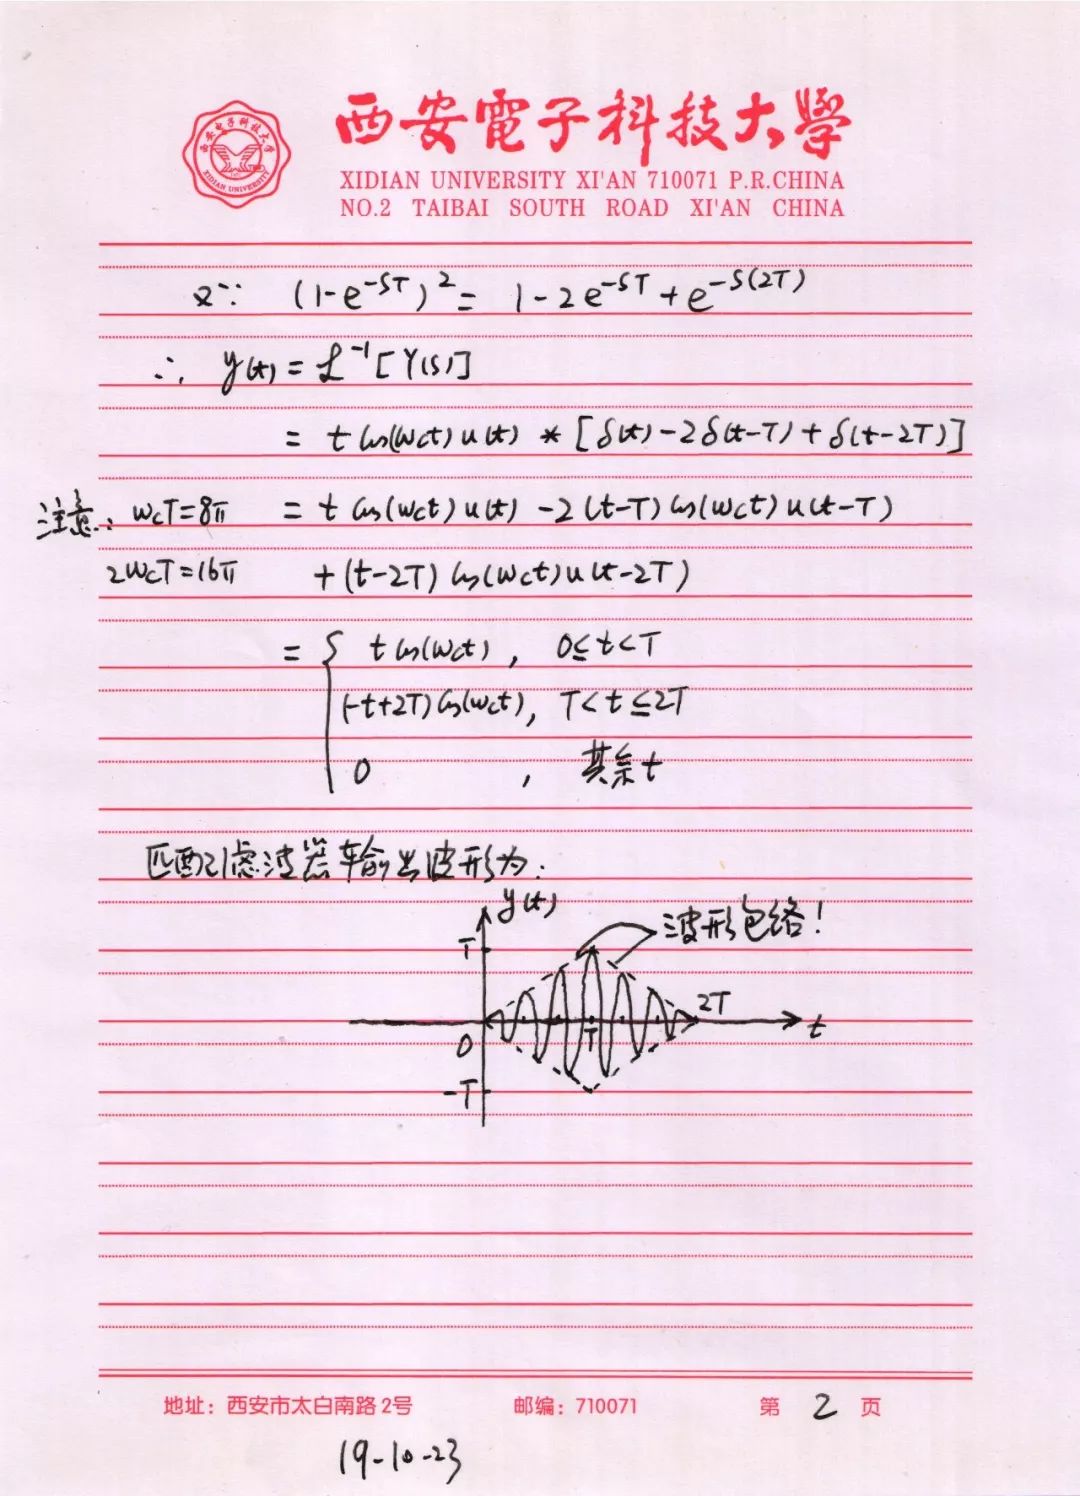 西安電子科技大學
XIDIAN UNIVERSITY XI'AN 710071 P.R.CHINA
NO.2 TAIBAI SOUTH ROAD XI'AN CHINA
西安电子科技大学
XIDIAN UNIVERSITY
又∵ (1-e^{-ST})^2 = 1-2e^{-ST}+e^{-S(2T)}
∴ y(t) = ℒ^{-1}[Y(s)]
= t cos(ωct) u(t) * [δ(t)-2δ(t-T)+δ(t-2T)]
注意: ωcT=8π = t cos(ωct) u(t) -2(t-T) cos(ωct) u(t-T)
2ωcT=16π +(t-2T) cos(ωct) u(t-2T)
= { t cos(ωct), 0≤t<T
(-t+2T) cos(ωct), T<t≤2T
0 , 其余t
匹配滤波器输出波形为:
y(t)
波形包络!
T
2T
0 T t
-T
地址：西安市太白南路2号 邮编：710071 第 2 页
19-10-23